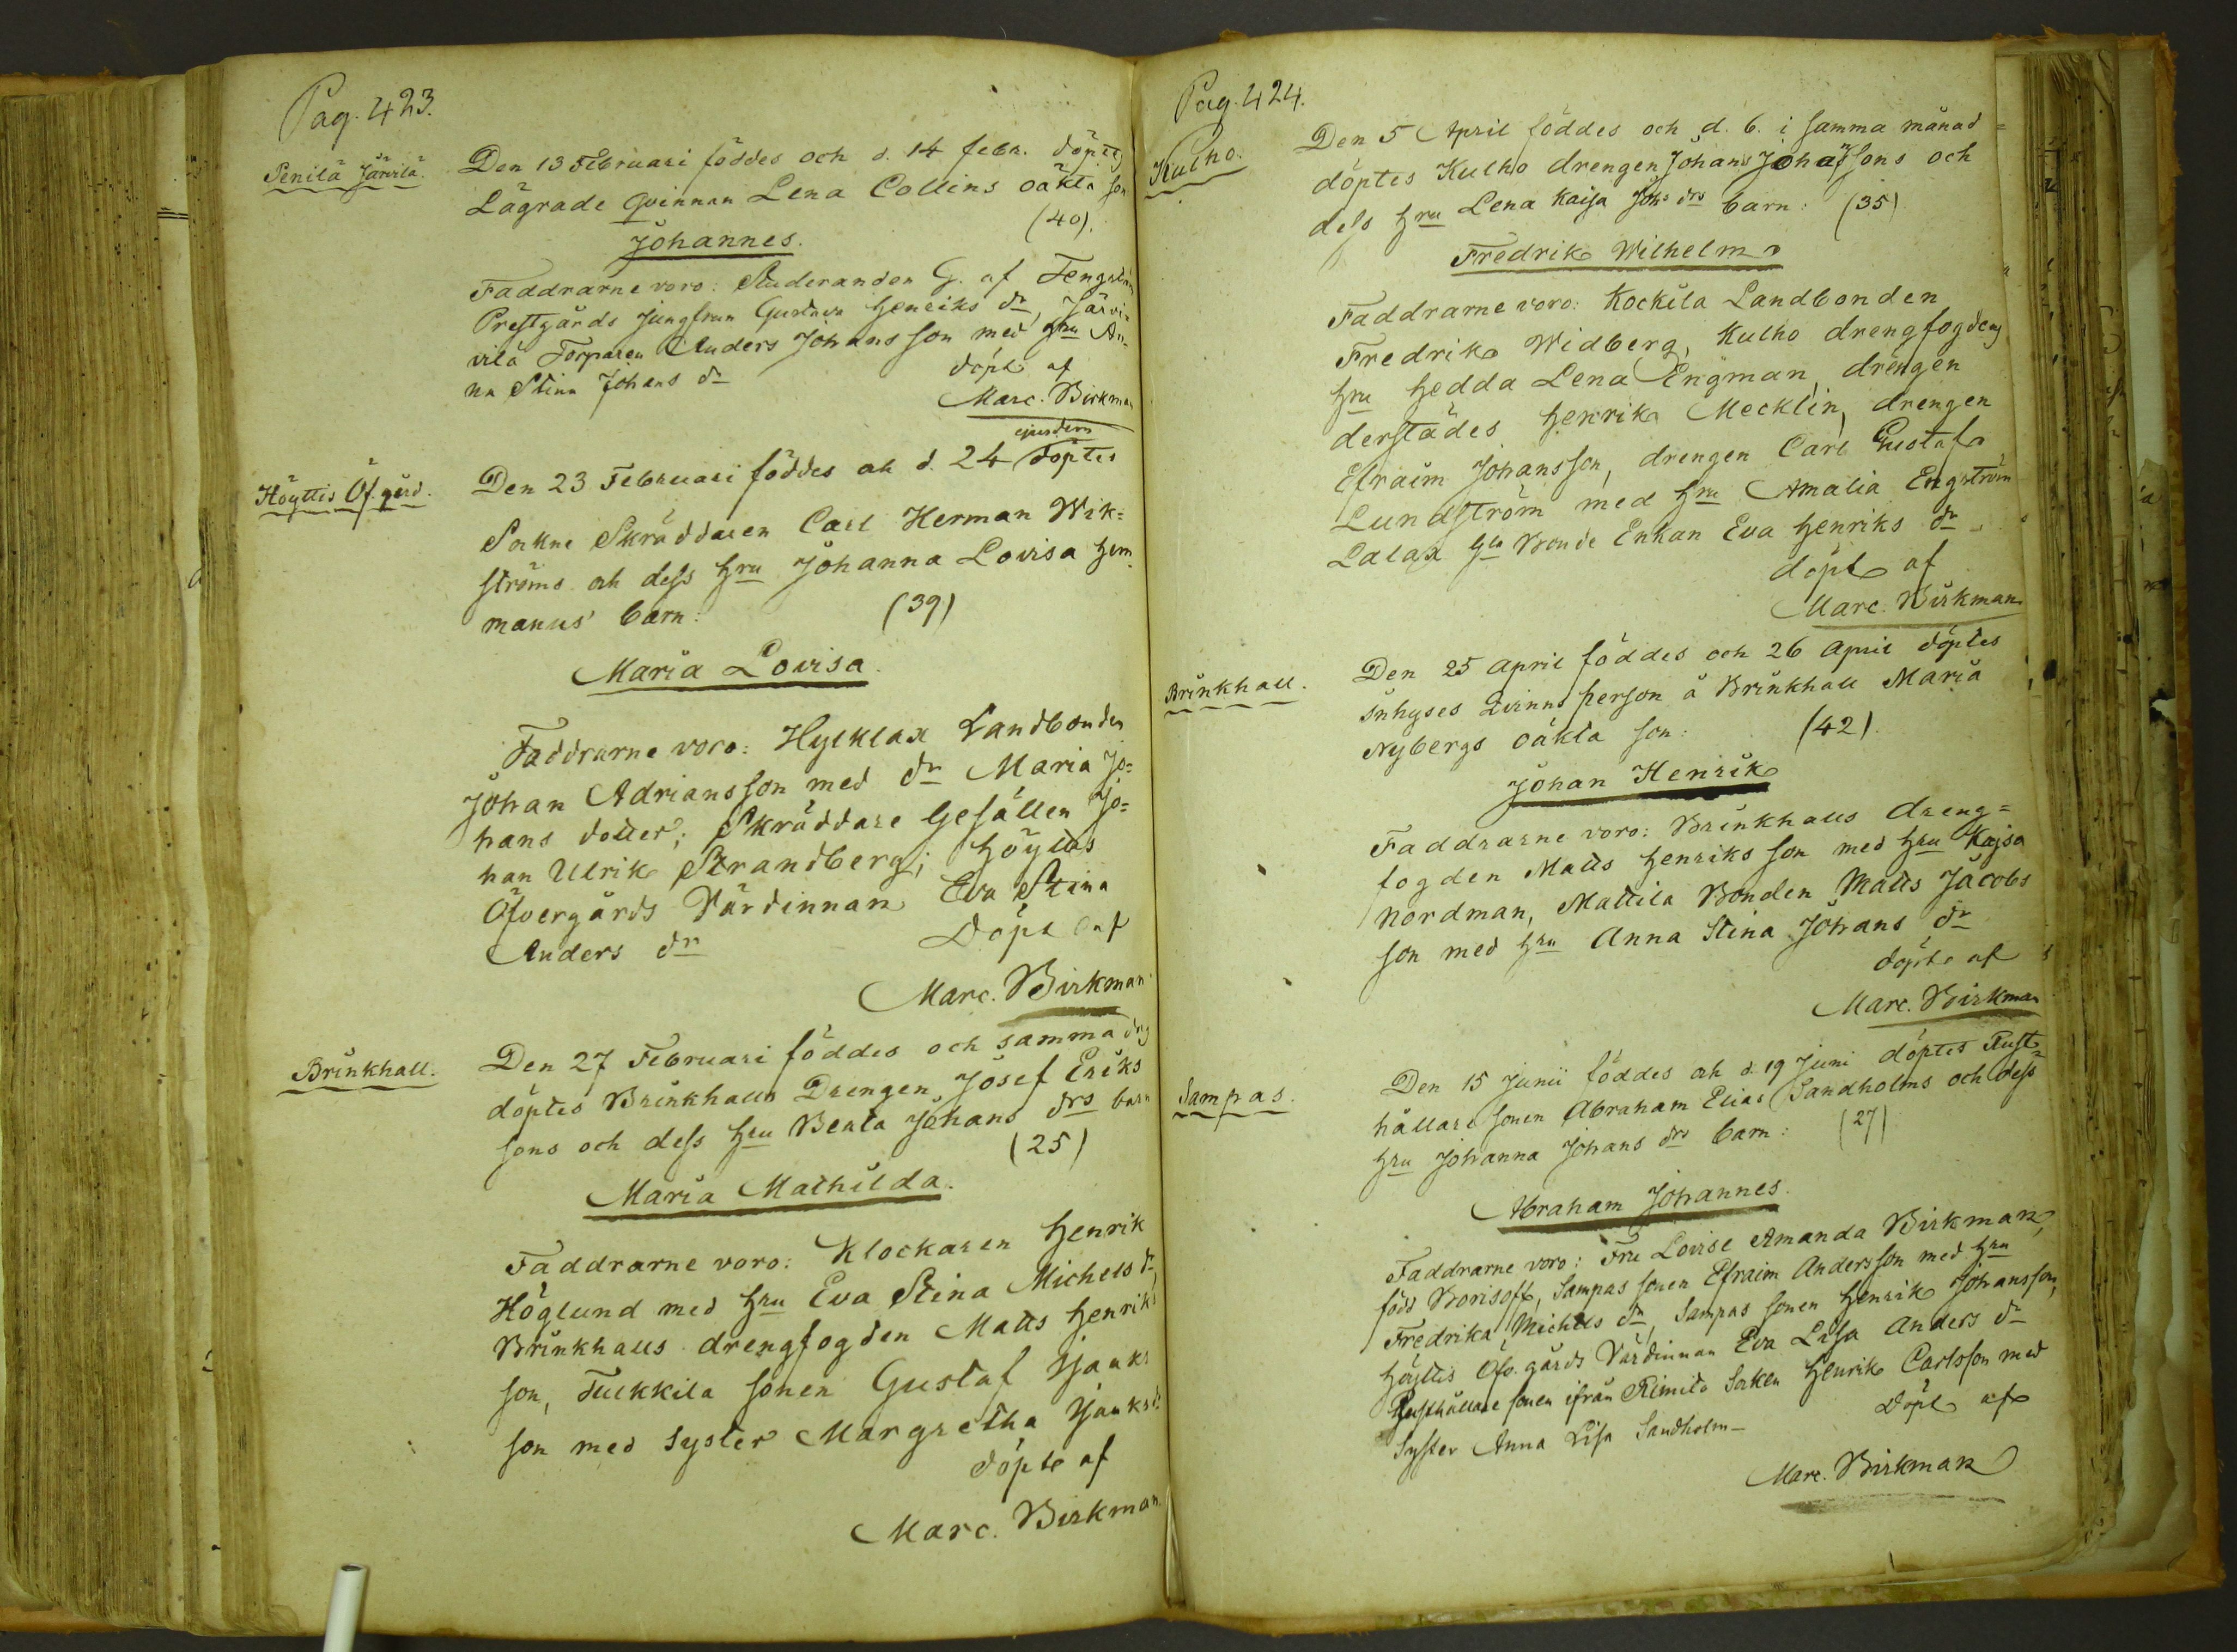 Pag. 423.
Penilä Järvilä.
Den 13 Februari föddes och d. 14 febr. döptes
Lägrade qvinnan Lena Collins oäkta son
(40).
Johannes.
Faddrarne voro: Studeranden G. af Tengström
Prestgårds Jungfrun Gustava Henriks dr, Järvi=
vilä Torparen Anders Johansson med hru An=
na Stina Johans dr
döpt af
Marc. Birkman
ejusdem
Höyttis Öf.gård.
Den 23 Februari föddes och d. 24 döptes
Sokne Skräddaren Carl Herman Wik=
ströms och dess hru Johanna Lovisa Hem=
manus' barn: (39)
Maria Lovisa.
Faddrarne voro: Hylklax Landbonden
Johan Adriansson med dr Maria Jo=
hans dotter; Skräddare Gesällen Jo=
han Ulrik Strandberg; höyttis
Öfvergårds Värdinnan Eva Stina
Anders dr Döpt af
Marc. Birkman
Brinkhall.
Den 27 Februari föddes och samma dag
döptes Brinkhalls Drengen Josef Eriks
sons och dess hru Beata Johans drs barn
(25)
Maria Mathilda.
Faddrarne voro: Klockaren Henrik
Höglund med hru Eva Stina Michels dr,
Brinkhalls drengfogden Matts Henriks
son, Tulkkila sonen Gustaf Isaaks
son med syster Margretha Isaks dr
döpte af
Marc. Birkman
Pag. 424.
Kulho.
Den 5 April föddes och d. 6. i samma månad
döptes Kulho drengen Johans Johanssons och
dess hru Lena Kaisa Johs drs barn: (35)
Fredrik Wilhelm
Faddrarne voro: Kockila Landbonden
Fredrik Widberg, Kulho drengfogdens
hru Hedda Lena Engman, drengen
derstädes Henrik Mecklin, drengen
Efraim Johansson, drengen Carl Gustaf
Lundström med hru Amalia Engström
Lalax Gla Bonde Enkan Eva Henriks dr
döpt af
Marc. Birkman
Brinkhall.
Den 25 April föddes och 26 April döptes
inhyses Qvinns person å Brinkhall Maria
Nybergs oäkta son: (42).
Johan Henrik
Faddrarne voro: Brinkhalls dreng=
fogden Matts Henriks son med hru Kajsa
Nordman, Mattila Bonden Matts Jacobs
son med hru Anna Stina Johans dr
döpte af
Marc. Birkman
Sampas.
Den 15 Junii föddes och d. 19 Juni döptes Rust=
hållare sonen Abraham Elias Sandholms och dess
hru Johanna Johans drs barn: (27)
Abraham Johannes.
Faddrarne voro: Fru Lovise Amanda Birkman,
född Borisoff, Sampas sonen Efraim Andersson med hru
Fredrika Michels dr, Sampas sonen Henrik Johansson,
Höyttis Öfv.gårds Värdinnan Eva Lisa Anders dr
Rusthållare sonen ifrån Rimito Socken Henrik Carlsson med
Syster Anna Lisa Sandholm— Döpt af
Marc. Birkman